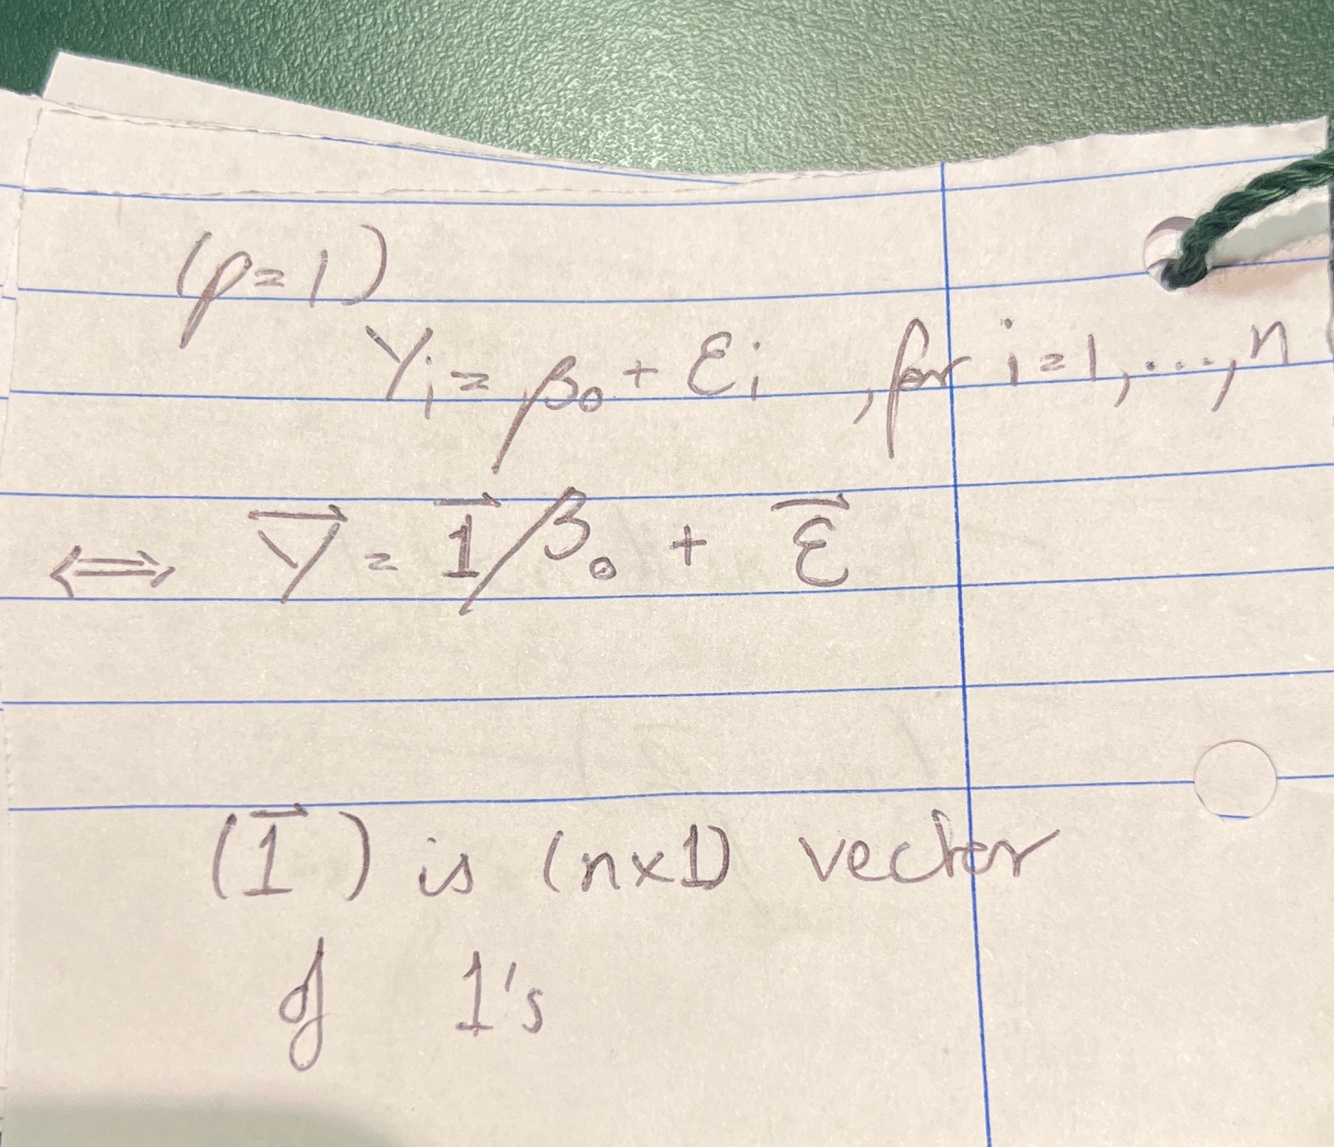 (p=1)
Yᵢ = β₀ + εᵢ , for i=1,...,n
⟺ Y⃗ = 1⃗ β₀ + ε⃗
(1⃗) is (n×1) vector
of 1's